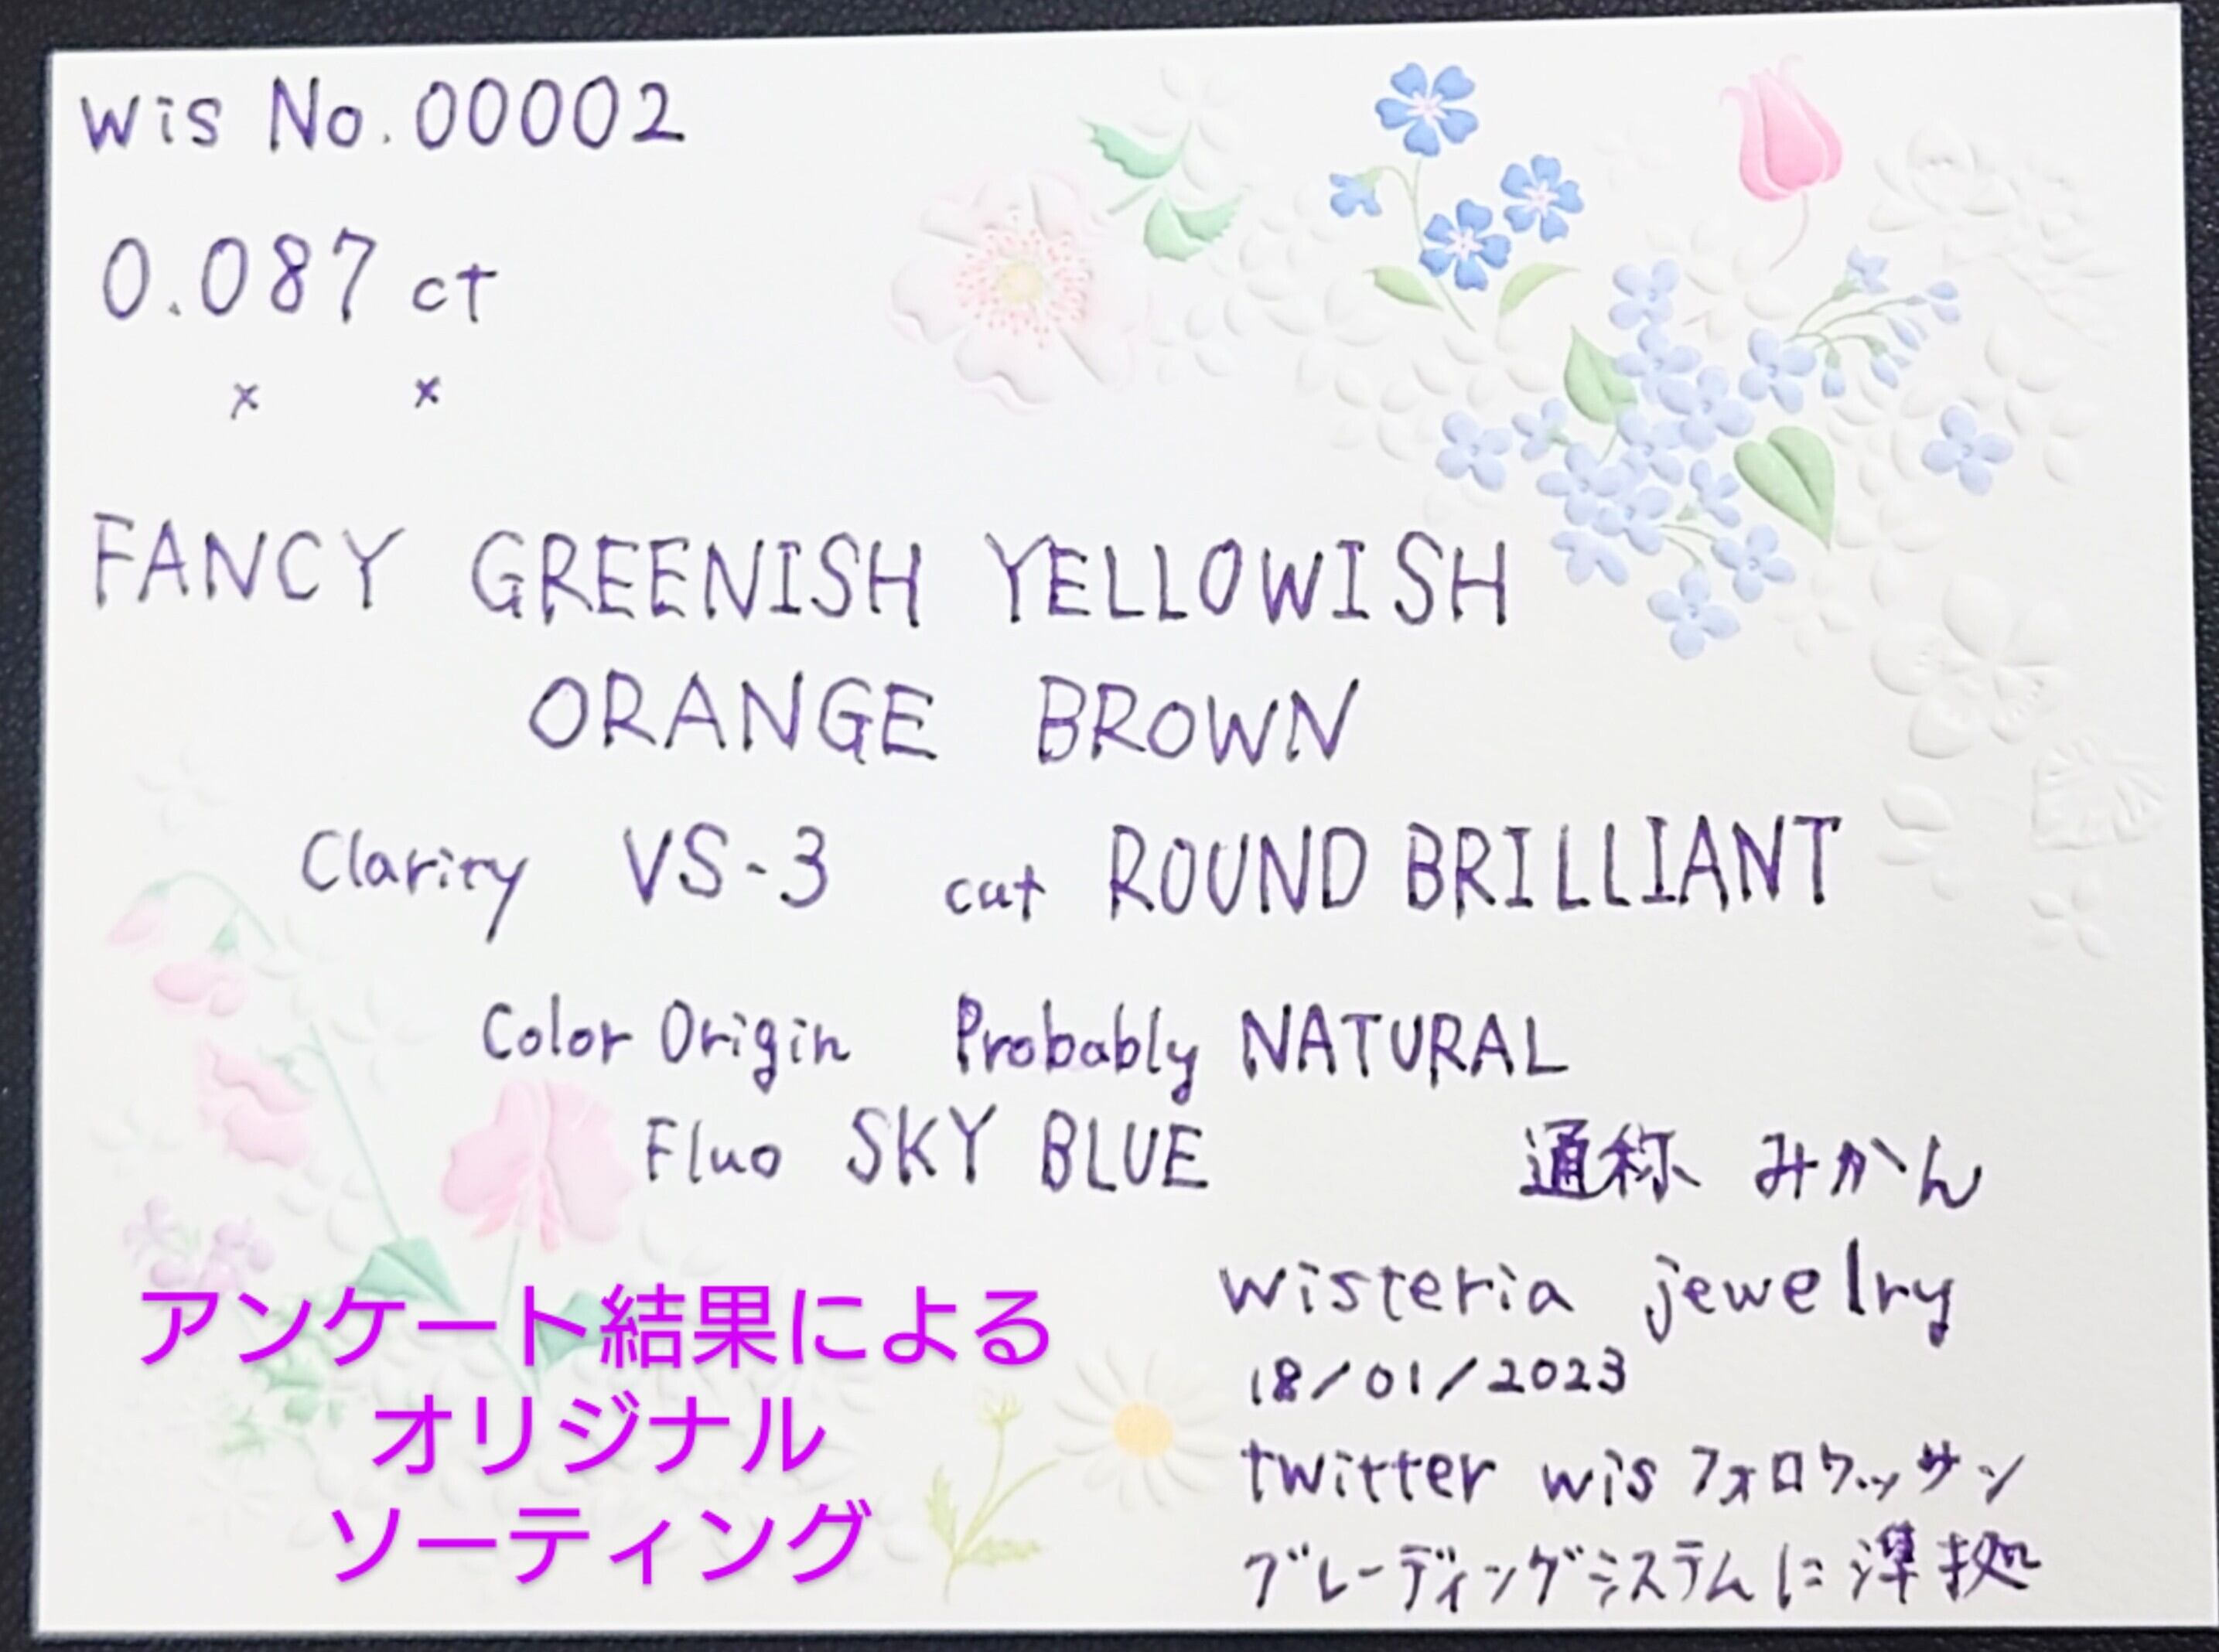 wis No.00002
0.087 ct
x x
FANCY GREENISH YELLOWISH
ORANGE BROWN
Clarity VS-3 cut ROUND BRILLIANT
Color Origin Probably NATURAL
Fluo SKY BLUE
通称 みかん
wisteria jewelry
18/01/2023
twitter wis フォロワッサン
グレーディングシステムに準拠
アンケート結果による
オリジナル
ソーティング